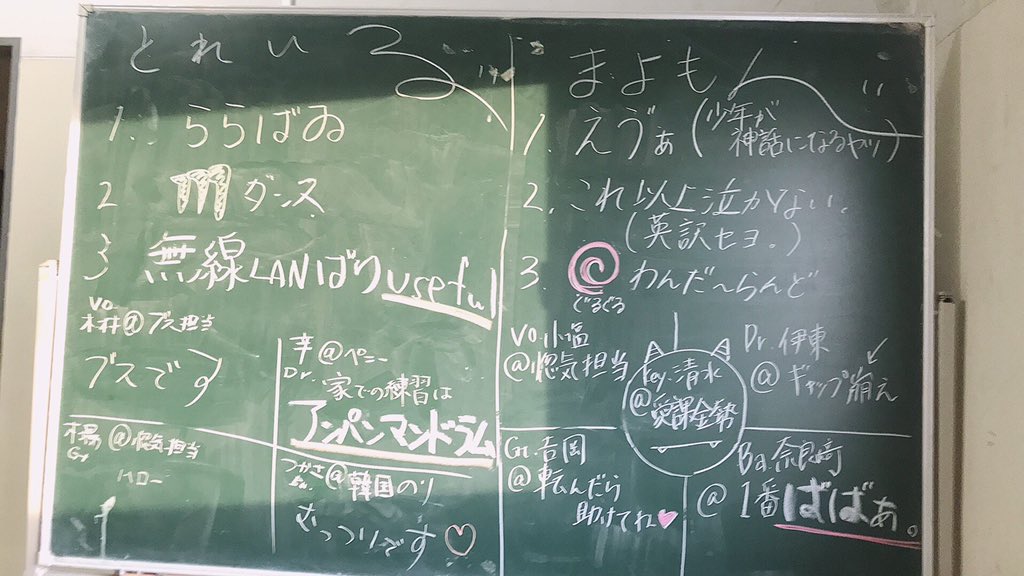 とれいる
1. ららばゐ
2 ダンス
3 無線LANばりuseful
Vo.
@ブス担当
ブスです
辛@ペニー
Dr.
家での練習は
アンパンマンドラム
楊@担当
Gt
ハロー
つかさ@韓国のり
むっつりです♡
まよもん
1. えゔぁ(少年が
神話になるヤツ)
2. これ以上泣かない。
(英訳セヨ。)
3. わんだ〜らんど
ぐるぐる
Vo.小塩
@燃気担当
Key:清水
@愛課金幣
Dr.伊東
@ギャップ萌え
Gt.吉岡
@転んだら
助けてね♥
Ba.奈良崎
@1番ばばぁ。